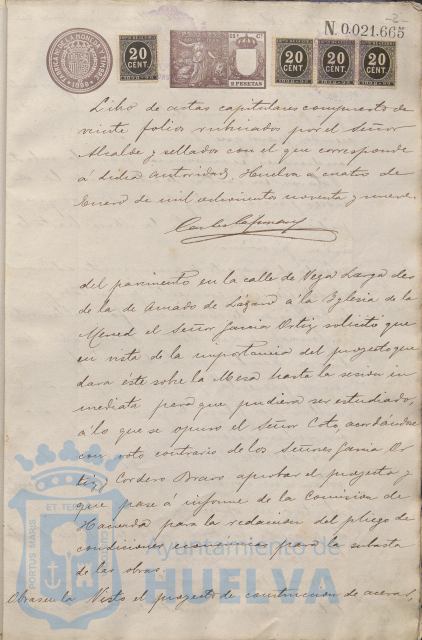 -2-
N. 0.021.665
FABRICA DE LA MONEDA Y TIMBRE
1898
20
CENT.
2 PESETAS
20
CENT.
20
CENT.
20
CENT.
Libro de actas capitulares compuesto de
veinte folios rubricados por el Señor
Alcalde y sellados con el que corresponde
á dicha autoridad. Huelva á cuatro de
Enero de mil ochocientos noventa y nueve.
del pavimento en la calle de Vega Larga des
de la de Amado de Lázaro á la Iglesia de la
Merced el Señor Garcia Ortiz solicitó que
en vista de la importancia del proyecto que
dara éste sobre la Mesa hasta la sesion in
mediata para que pudiera ser estudiado,
á lo que se opuso el Señor Coto, acordándose
con voto contrario de los Señores Garcia Or
tiz y Cordero Bravo aprobar el proyecto y
que pase á informe de la Comision de
Hacienda para la redaccion del pliego de
condiciones economicas para la subasta
de las obras.
Obras en la Visto el proyecto de construccion de aceras
PORTUS MARIS ET TERRAE
Ayuntamiento de
HUELVA